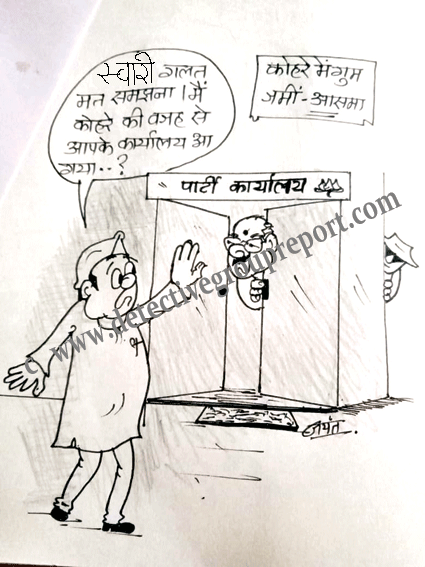 स्वारी गलत
मत समझना । मैं
कोहरे की वजह से
आपके कार्यालय आ
गया..?
कोहरे में गुम
जमीं - आसमा
पार्टी कार्यालय
© www.detectivegroupreport.com
जयंत